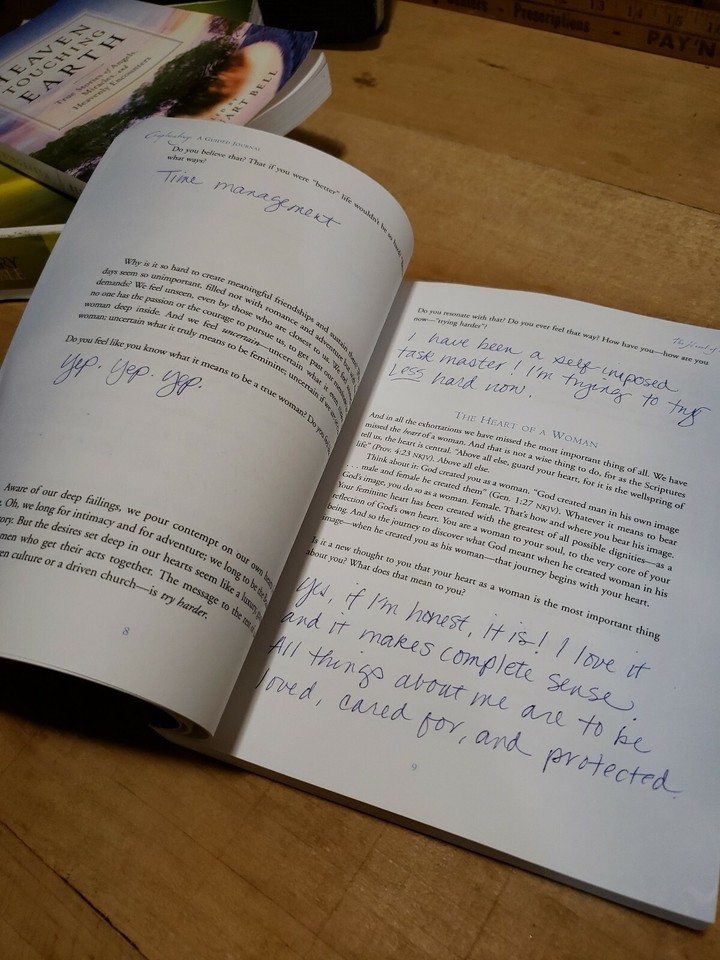 HEAVEN
TOUCHING
EARTH
True Stories of Angels,
Miracles, and
Heavenly Encounters
ART BELL
Prescriptions
13 14 15
PAY'N
A GUIDED JOURNAL
Do you believe that? That if you were "better" life wouldn't be so hard?
what ways?
Time management
Why is it so hard to create meaningful friendships and sustain
days seem so unimportant, filled not with romance and adventure but with
demands? We feel unseen, even by those who are closest to us. We feel
no one has the passion or the courage to pursue us, to get past our
woman deep inside. And we feel uncertain—uncertain what it
woman; uncertain what it truly means to be feminine; uncertain if we
Do you feel like you know what it means to be a true woman? Do you
Yep. Yep. Yep.
Aware of our deep failings, we pour contempt on our own
Oh, we long for intimacy and for adventure; we long to be the
ory. But the desires set deep in our hearts seem like a luxury,
men who get their acts together. The message to the rest
en culture or a driven church—is try harder.
8
Do you resonate with that? Do you ever feel that way? How have you—how are you
now—"trying harder"?
I have been a self-imposed
task master! I'm trying to try
Less hard now.
THE HEART OF A WOMAN
And in all the exhortations we have missed the most important thing of all. We have
missed the heart of a woman. And that is not a wise thing to do, for as the Scriptures
tell us, the heart is central. "Above all else, guard your heart, for it is the wellspring of
life" (Prov. 4:23 NKJV). Above all else.
Think about it: God created you as a woman. "God created man in his own image
. . . male and female he created them" (Gen. 1:27 NKJV). Whatever it means to bear
God's image, you do so as a woman. Female. That's how and where you bear his image.
Your feminine heart has been created with the greatest of all possible dignities—as a
reflection of God's own heart. You are a woman to your soul, to the very core of your
being. And so the journey to discover what God meant when he created woman in his
image—when he created you as his woman—that journey begins with your heart.
Is it a new thought to you that your heart as a woman is the most important thing
about you? What does that mean to you?
Yes, if I'm honest, it is! I love it
and it makes complete sense.
All things about me are to be
loved, cared for, and protected.
9